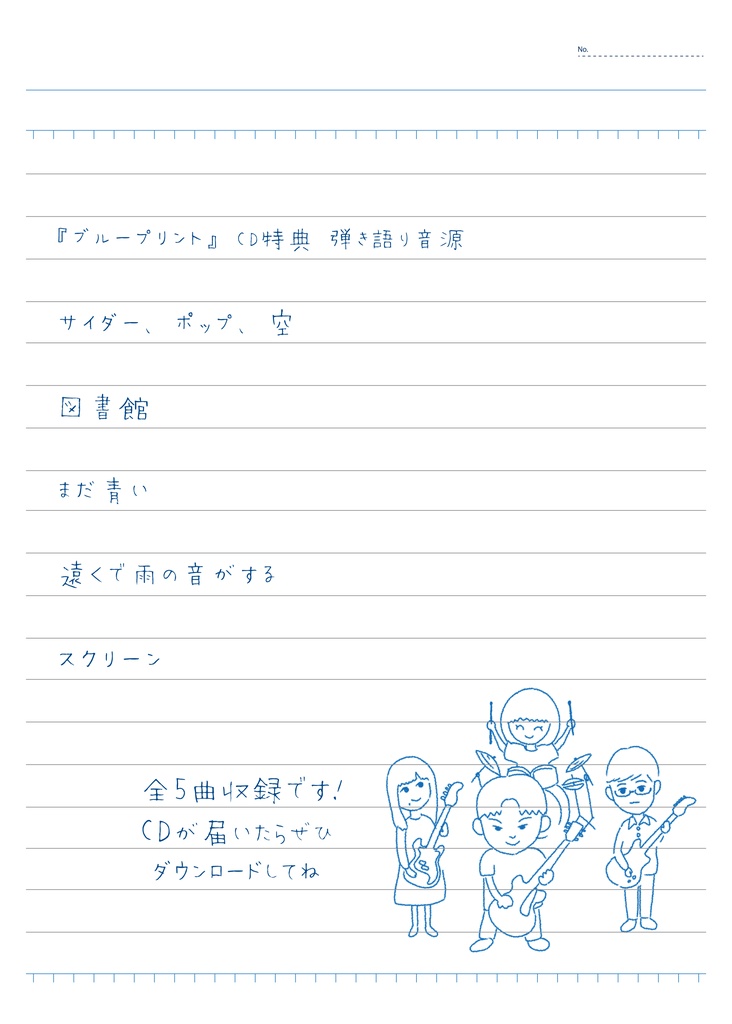 No.
『ブループリント』 CD特典 弾き語り音源
サイダー、 ポップ、 空
図書館
まだ青い
遠くで雨の音がする
スクリーン
全5曲収録です!
CDが届いたらぜひ
ダウンロードしてね